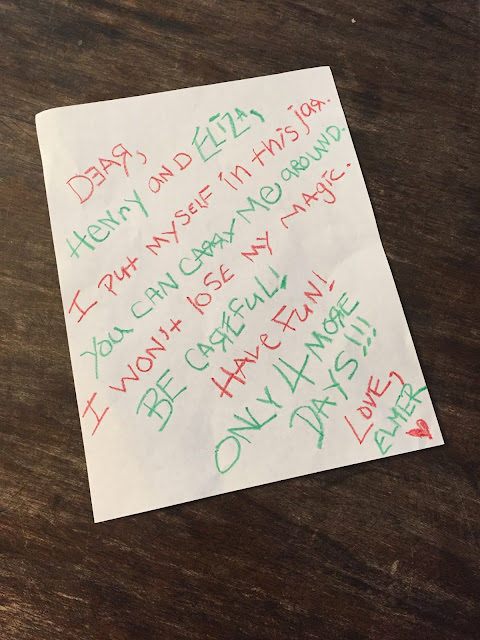 DEAR,
HENRY AND ELIZA,
I PUT MYSELF in this jar.
YOU CAN CARRY ME AROUND.
I WON't LOSE MY MAGIC.
BE CAREFUL!
HAVE FUN!
ONLY 4 MORE
DAYS!!!
LOVE,
ELMER